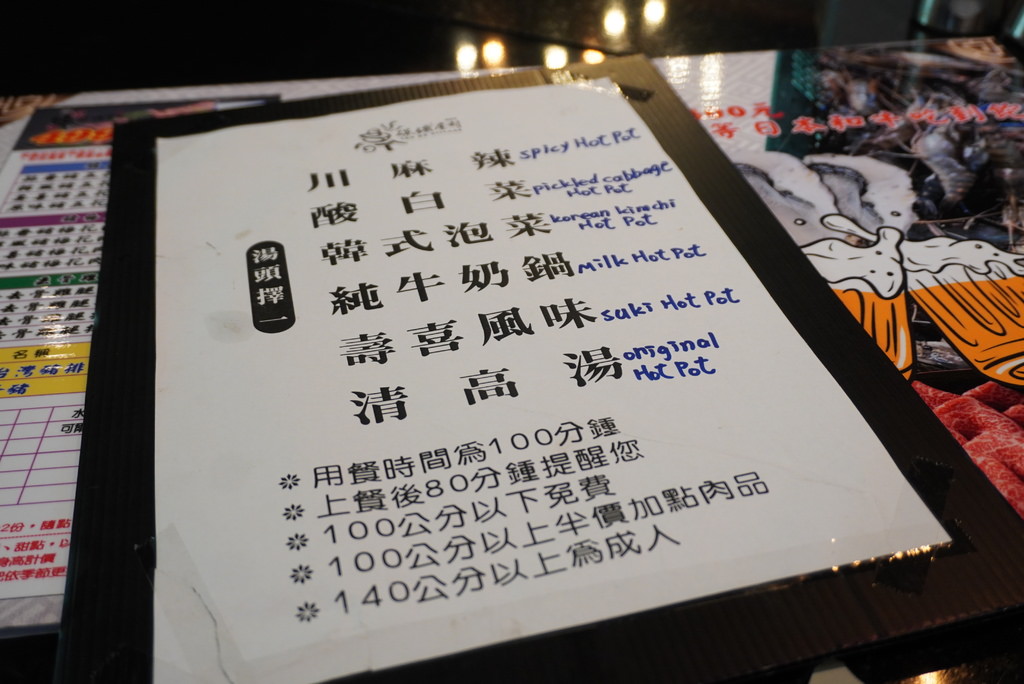 川麻辣 spicy Hot Pot
酸白菜 pickled cabbage Hot Pot
韓式泡菜 korean kimchi Hot Pot
純牛奶鍋 Milk Hot Pot
壽喜風味 suki Hot Pot
清高湯 original Hot Pot
湯頭擇一
※用餐時間為100分鐘
※上餐後80分鐘提醒您
※100公分以下免費
※100公分以上半價加點肉品
※140公分以上為成人
等日本和牛吃到飽
名稱
台灣豬排